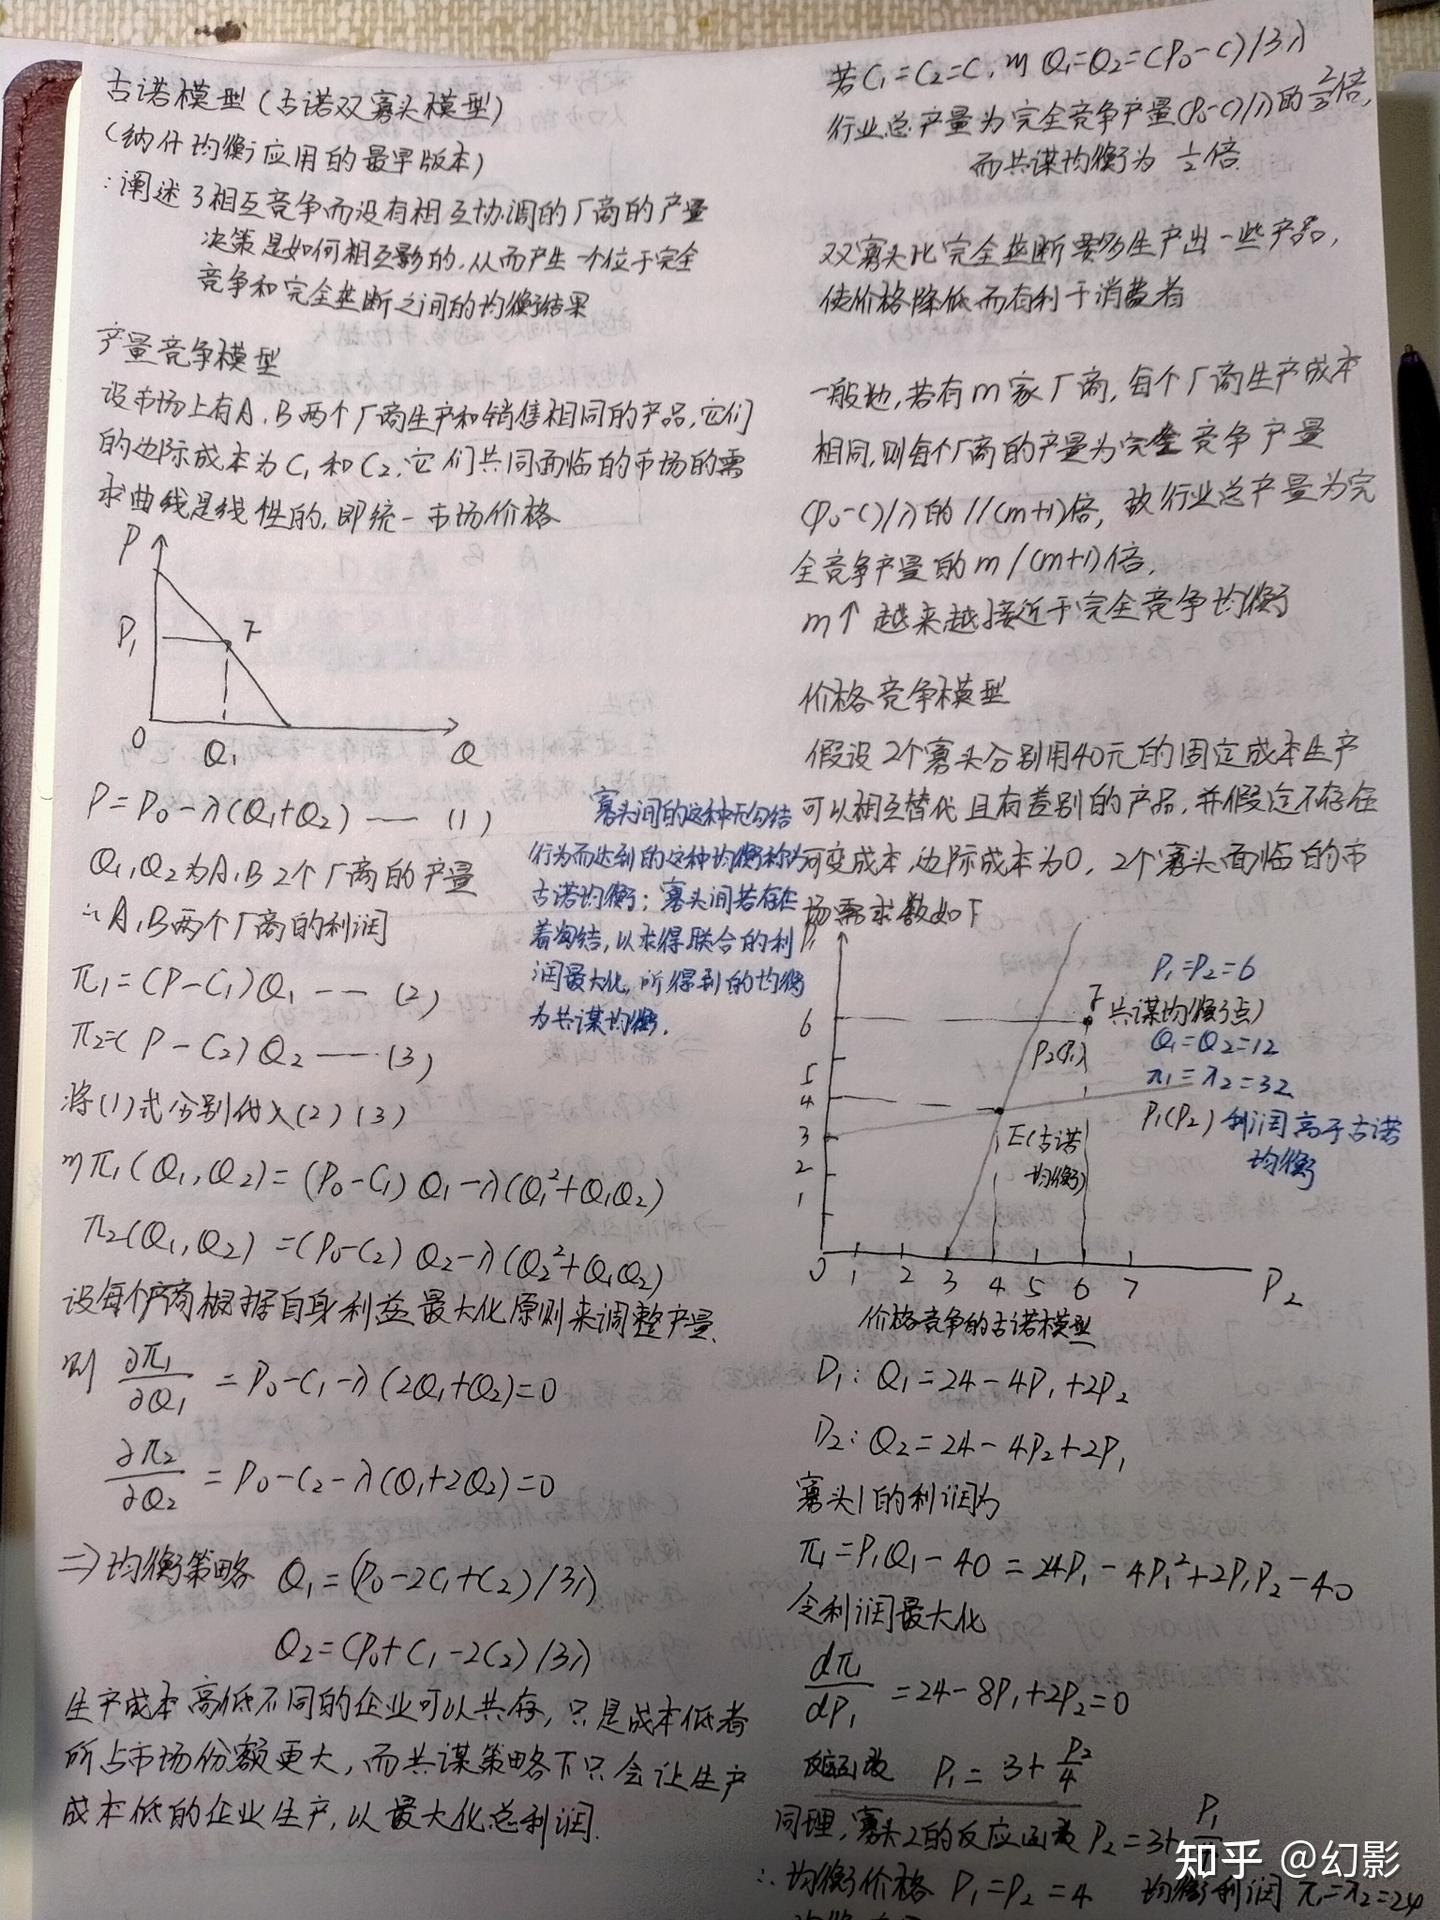 古诺模型(古诺双寡头模型)
(纳什均衡应用的最早版本)
:阐述了相互竞争而没有相互协调的厂商的产量
决策是如何相互影的,从而产生一个位于完全
竞争和完全垄断之间的均衡结果
产量竞争模型
设市场上有A、B两个厂商生产和销售相同的产品,它们
的边际成本为C₁和C₂,它们共同面临的市场的需
求曲线是线性的,即统一市场价格
P
P₁
F
0
Q₁
Q
P=P₀-λ(Q₁+Q₂) —— (1)
Q₁,Q₂为A、B 2个厂商的产量
∴A、B两个厂商的利润
π₁=(P-C₁)Q₁ —— (2)
π₂=(P-C₂)Q₂ ——(3)
将(1)式分别代入(2)(3)
则π₁(Q₁,Q₂)=(P₀-C₁)Q₁-λ(Q₁²+Q₁Q₂)
π₂(Q₁,Q₂)=(P₀-C₂)Q₂-λ(Q₂²+Q₁Q₂)
设每个厂商根据自身利益最大化原则来调整产量、
则 ∂π₁/∂Q₁ =P₀-C₁-λ(2Q₁+Q₂)=0
∂π₂/∂Q₂ =P₀-C₂-λ(Q₁+2Q₂)=0
⇒均衡策略 Q₁=(P₀-2C₁+C₂)/3λ
Q₂=(P₀+C₁-2C₂)/3λ
生产成本高低不同的企业可以共存,只是成本低者
所占市场份额更大,而共谋策略下只会让生产
成本低的企业生产,以最大化总利润.
寡头间的这种无勾结
行为而达到的这种均衡称为
古诺均衡;寡头间若存在
着勾结,以求得联合的利
润最大化,所得到的均衡
为共谋均衡.
若C₁=C₂=C,则Q₁=Q₂=(P₀-C)/3λ
行业总产量为完全竞争产量(P₀-C)/λ的2/3倍,
而共谋均衡为 1/2倍.
双寡头比完全垄断要多生产出一些产品,
使价格降低而有利于消费者
一般地,若有m家厂商,每个厂商生产成本
相同,则每个厂商的产量为完全竞争产量
(P₀-C)/λ的1/(m+1)倍,故行业总产量为完
全竞争产量的m/(m+1)倍,
m↑ 越来越接近于完全竞争均衡
价格竞争模型
假设2个寡头分别用40元的固定成本生产
可以相互替代且有差别的产品,并假设不存在
可变成本,边际成本为0,2个寡头面临的市
场需求数如下
P₁
6
5
4
3
2
1
0 1 2 3 4 5 6 7
P₂
F
共谋均衡点)
P₁=P₂=6
Q₁=Q₂=12
π₁=π₂=32
P₂(P₁)
P₁(P₂)
利润高于古诺
均衡
E(古诺
均衡)
价格竞争的古诺模型
D₁: Q₁=24-4P₁+2P₂
D₂: Q₂=24-4P₂+2P₁
寡头1的利润为
π₁=P₁Q₁-40=24P₁-4P₁²+2P₁P₂-40
令利润最大化
dπ₁/dP₁ =24-8P₁+2P₂=0
反应函数 P₁=3+P₂/4
同理,寡头2的反应函数P₂=3+P₁/
∴均衡价格 P₁=P₂=4 均衡利润 π₁=π₂=24
知乎 @幻影